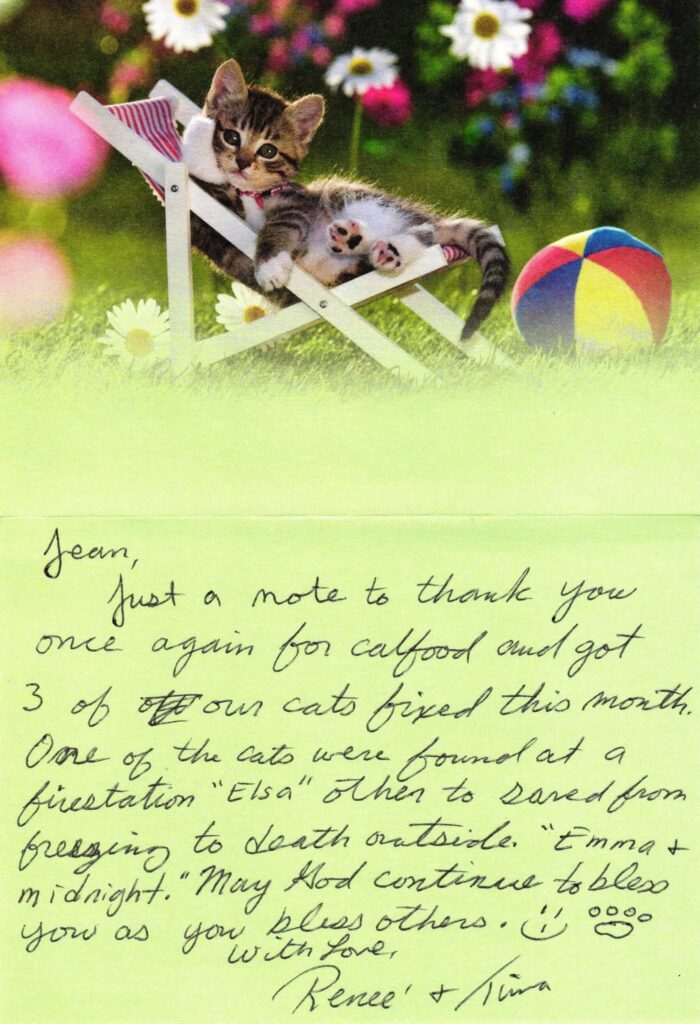 Jean,
Just a note to thank you
once again for catfood and got
3 of our cats fixed this month.
One of the cats were found at a
firestation "Elsa" other to saved from
freezing to death outside. "Emma +
midnight." May God continue to bless
you as you bless others.
With Love,
Reneé + Tina